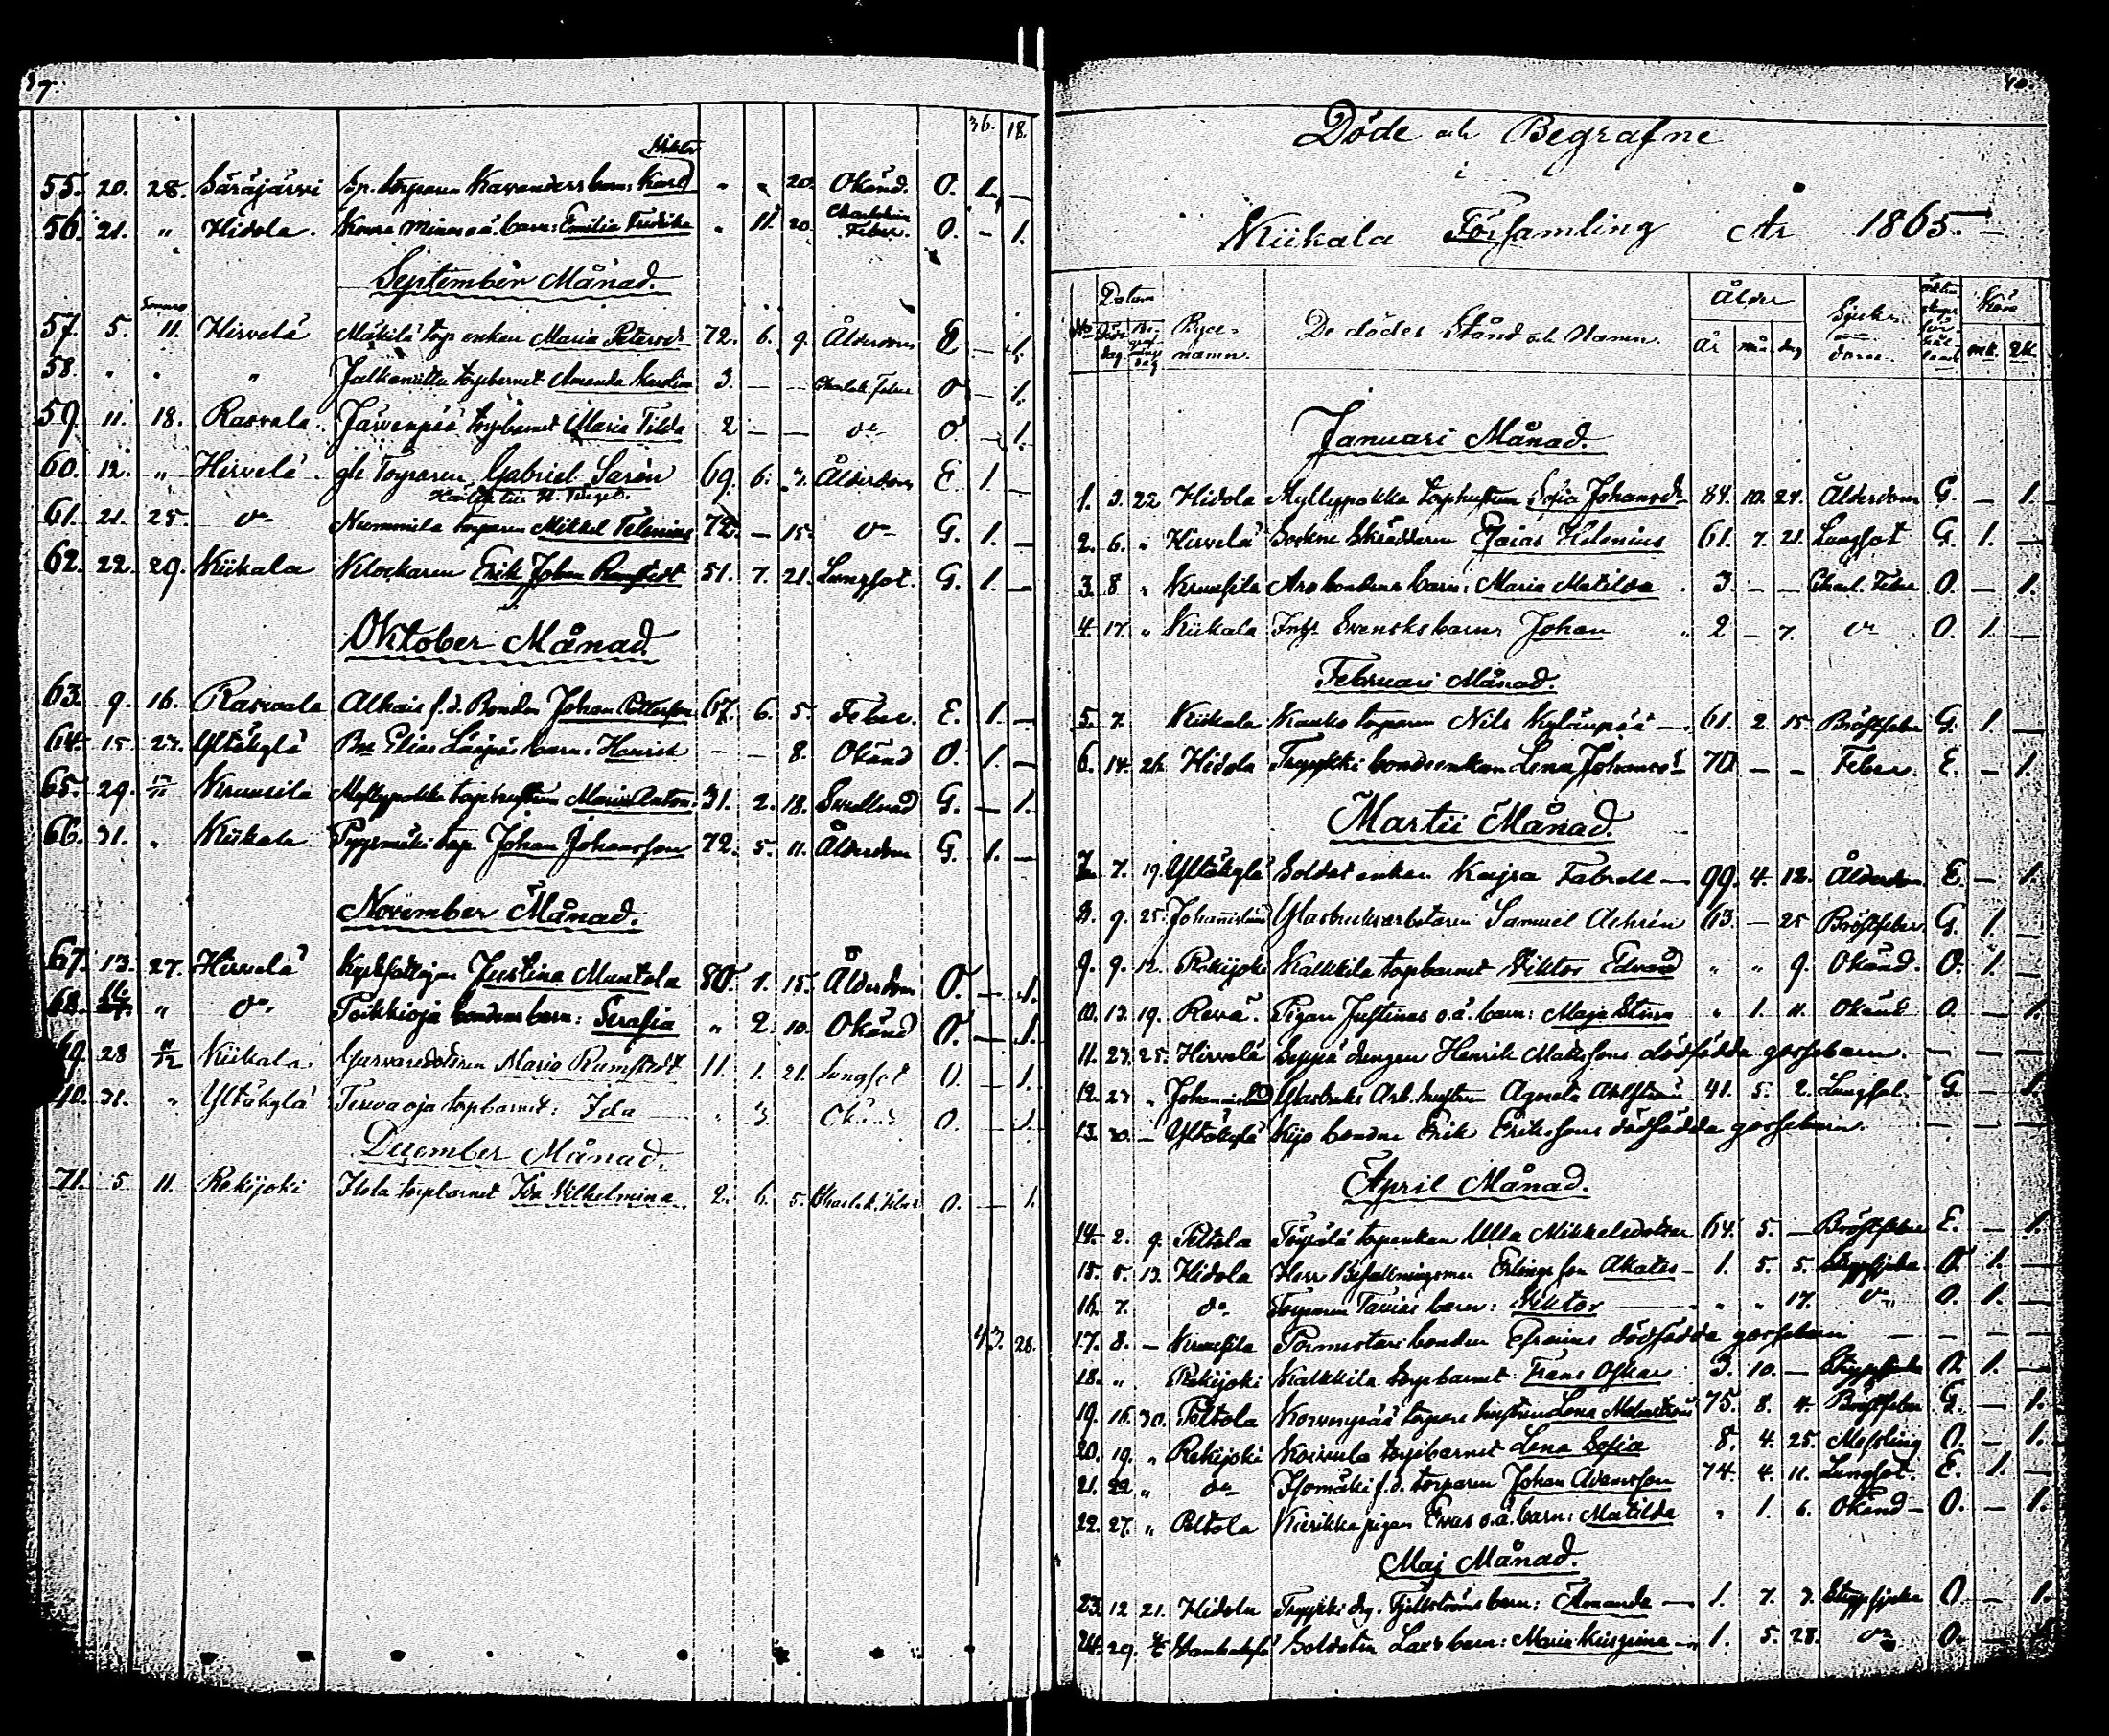 36. 18.
Viktor
55. 20. 28. Säräjärvi torparen barn: Karl „ „ 20. Okänd. O. 1. —
56. 21. „ Hidola. o.ä. barn: Emilia Fredrika „ 11. 20. Feber. O. — 1.
September Månad.
57. 5. 11. Hirvelä Mäkilä torp enkan Maria Petersd. 72. 6. 9. Ålderdom E — 1.
58. „ „ „ torpbarnet Amanda Karolina 3. — — Charlak. feber O — 1.
59. 11. 18. Rasvala. Järvenpää torpbarnet Maria Tilda 2 — — do O — 1.
60. 12. „ Hirvelä. Torparen Gabriel Sarén 69. 6. 3. Ålderdom E 1. —
61. 21. 25. do Nummila torparen Mikkel Telenius 72. — 15. do G. 1. —
62. 22. 29. Kiikala Klockaren Erik Johan Ramstedt 51. 7. 21. Lungsot. G. 1. —
Oktober Månad.
63. 9. 16. Rasvala f.d. Bonden Johan 67. 6. 5. Feber. E. 1. —
64. 15. 22. Yltäkylä Elias barn: Henrik — — 8. Okänd O. 1. —
65. 29. Kruusila Myllypakka torphustrun Maria Anton. 31. 2. 18. G. — 1.
66. 31. „ Kiikala torp. Johan Johansson 72. 5. 11. Ålderdom G. 1. —
November Månad.
67. 13. 27. Hirvelä Justina Mantola 80. 1. 15. Ålderdom O. — 1.
68. 16. „ do Toikkioja bondens barn: Serafia „ 2. 10. Okänd O. — 1.
69. 28 Kiikala Garvaredottren Maria Ramstedt 11. 1. 21. Lungsot O. — 1.
70. 31. „ Yltäkylä Tervaoja torpbarnet: Ida „ 3. — Okänd O. — 1.
December Månad.
71. 5 11. Rekijoki Isola torpbarnet Ida Vilhelmina 2. 6. 5. Charlak. feber O. — 1.
43. 28.
70.
Döde och Begrafne
i
Kiikala Församling År 1865.
No Datum Döds dag. Begrafnings dag Byens namn. De dödes Stånd och Namn. Ålder år mån. dag Sjukdom. Kön mk. qk.
Januari Månad.
1. 3. 22 Hidola Myllypakka torphustrun Sofia Johansdr 84. 10. 24. Ålderdom G. — 1.
2. 6. „ Hirvelä Sockne Skräddaren Esaias Helenius 61. 7. 21. Lungsot G. 1. —
3. 8 „ Kruusila Aro bondens barn: Maria Matilda 3. — — Charl. Feber O. — 1.
4. 17. „ Kiikala Svensks barn Johan 2 — 7. do O. 1. —
Februari Månad.
5. 7. Kiikala torparen Nils Kylänpää — 61. 2. 15. Bröstfeber G. 1. —
6. 14. 26. Hidola Trpykki bondeenkan Lena Johansd. 70 — — Feber. E. — 1.
Martii Månad.
7. 7. 19. Yltäkylä Soldat enkan Kajsa Fabrell — 99. 4. 12. Ålderdom. E. — 1.
8. 9. 25. Johannislund Glasbruksarbetaren Samuel Achrén 63. — 25 Bröstfeber G. 1. —
9. 9. 12. Rekijoki Kalkkila torpbarnet Viktor Edvard „ „ 9. Okänd. O. 1. —
10. 13. 19. Pigan Justinas o.ä. barn: Maja Stina „ 1. 11. Okänd O. — 1.
11. 23. 25. Hirvelä Seppä drengen Henrik Matssons dödfödda gossebarn. — — —
12. 23 „ Johannislund Glasbruks Arb. hustrun Agneta Ahlström 41. 5. 2. Lungsot. G — 1.
13. 30. — Yltäkylä bonden Erik Erikssons dödfödda gossebarn. — — —
April Månad.
14. 2. 9. Peltola Töyrälä torpenkan Ulla Mikkelsdotter 64. 5. — Bröstfeber E. — 1.
15. 5. 13. Hidola Herr Befallningsman Erlings son Akates — 1. 5. 5. Strypsjuka. O. 1. —
16. 7. do Torparen barn: Viktor „ „ 17. do O. 1. —
17. 8. — Kruusila Pormestari bonden Efraims dödfödda gossebarn — — — —
18. „ Rekijoki Kalkkila torpbarnet Frans Oskar 3. 10. — Strypsjuka O. 1. —
19. 16. 30. Peltola Korvenpää torpare hustrun Lena Malmström 75. 8. 4. Bröstfeber G. — 1.
20. 19. „ Rekijoki Koivula torpbarnet Lena Sofia 8. 4. 25. Messling O. — 1.
21. 22 „ do Isomäki f.d. torparen Johan Adamsson 74. 4. 11. Lungsot. E. 1. —
22. 27. „ Peltola Kierikka pigan Evas o.ä. barn: Matilda „ 1. 6. Okänd — O. — 1.
Maj Månad.
23. 12 21. Hidola Trpykki drg. Fjellströms barn: Amanda — 1. 7. 3. Strypsjuka O. — 1.
24. 29. Soldaten Lax's barn: Maria 1. 5. 28. do O. — 1.